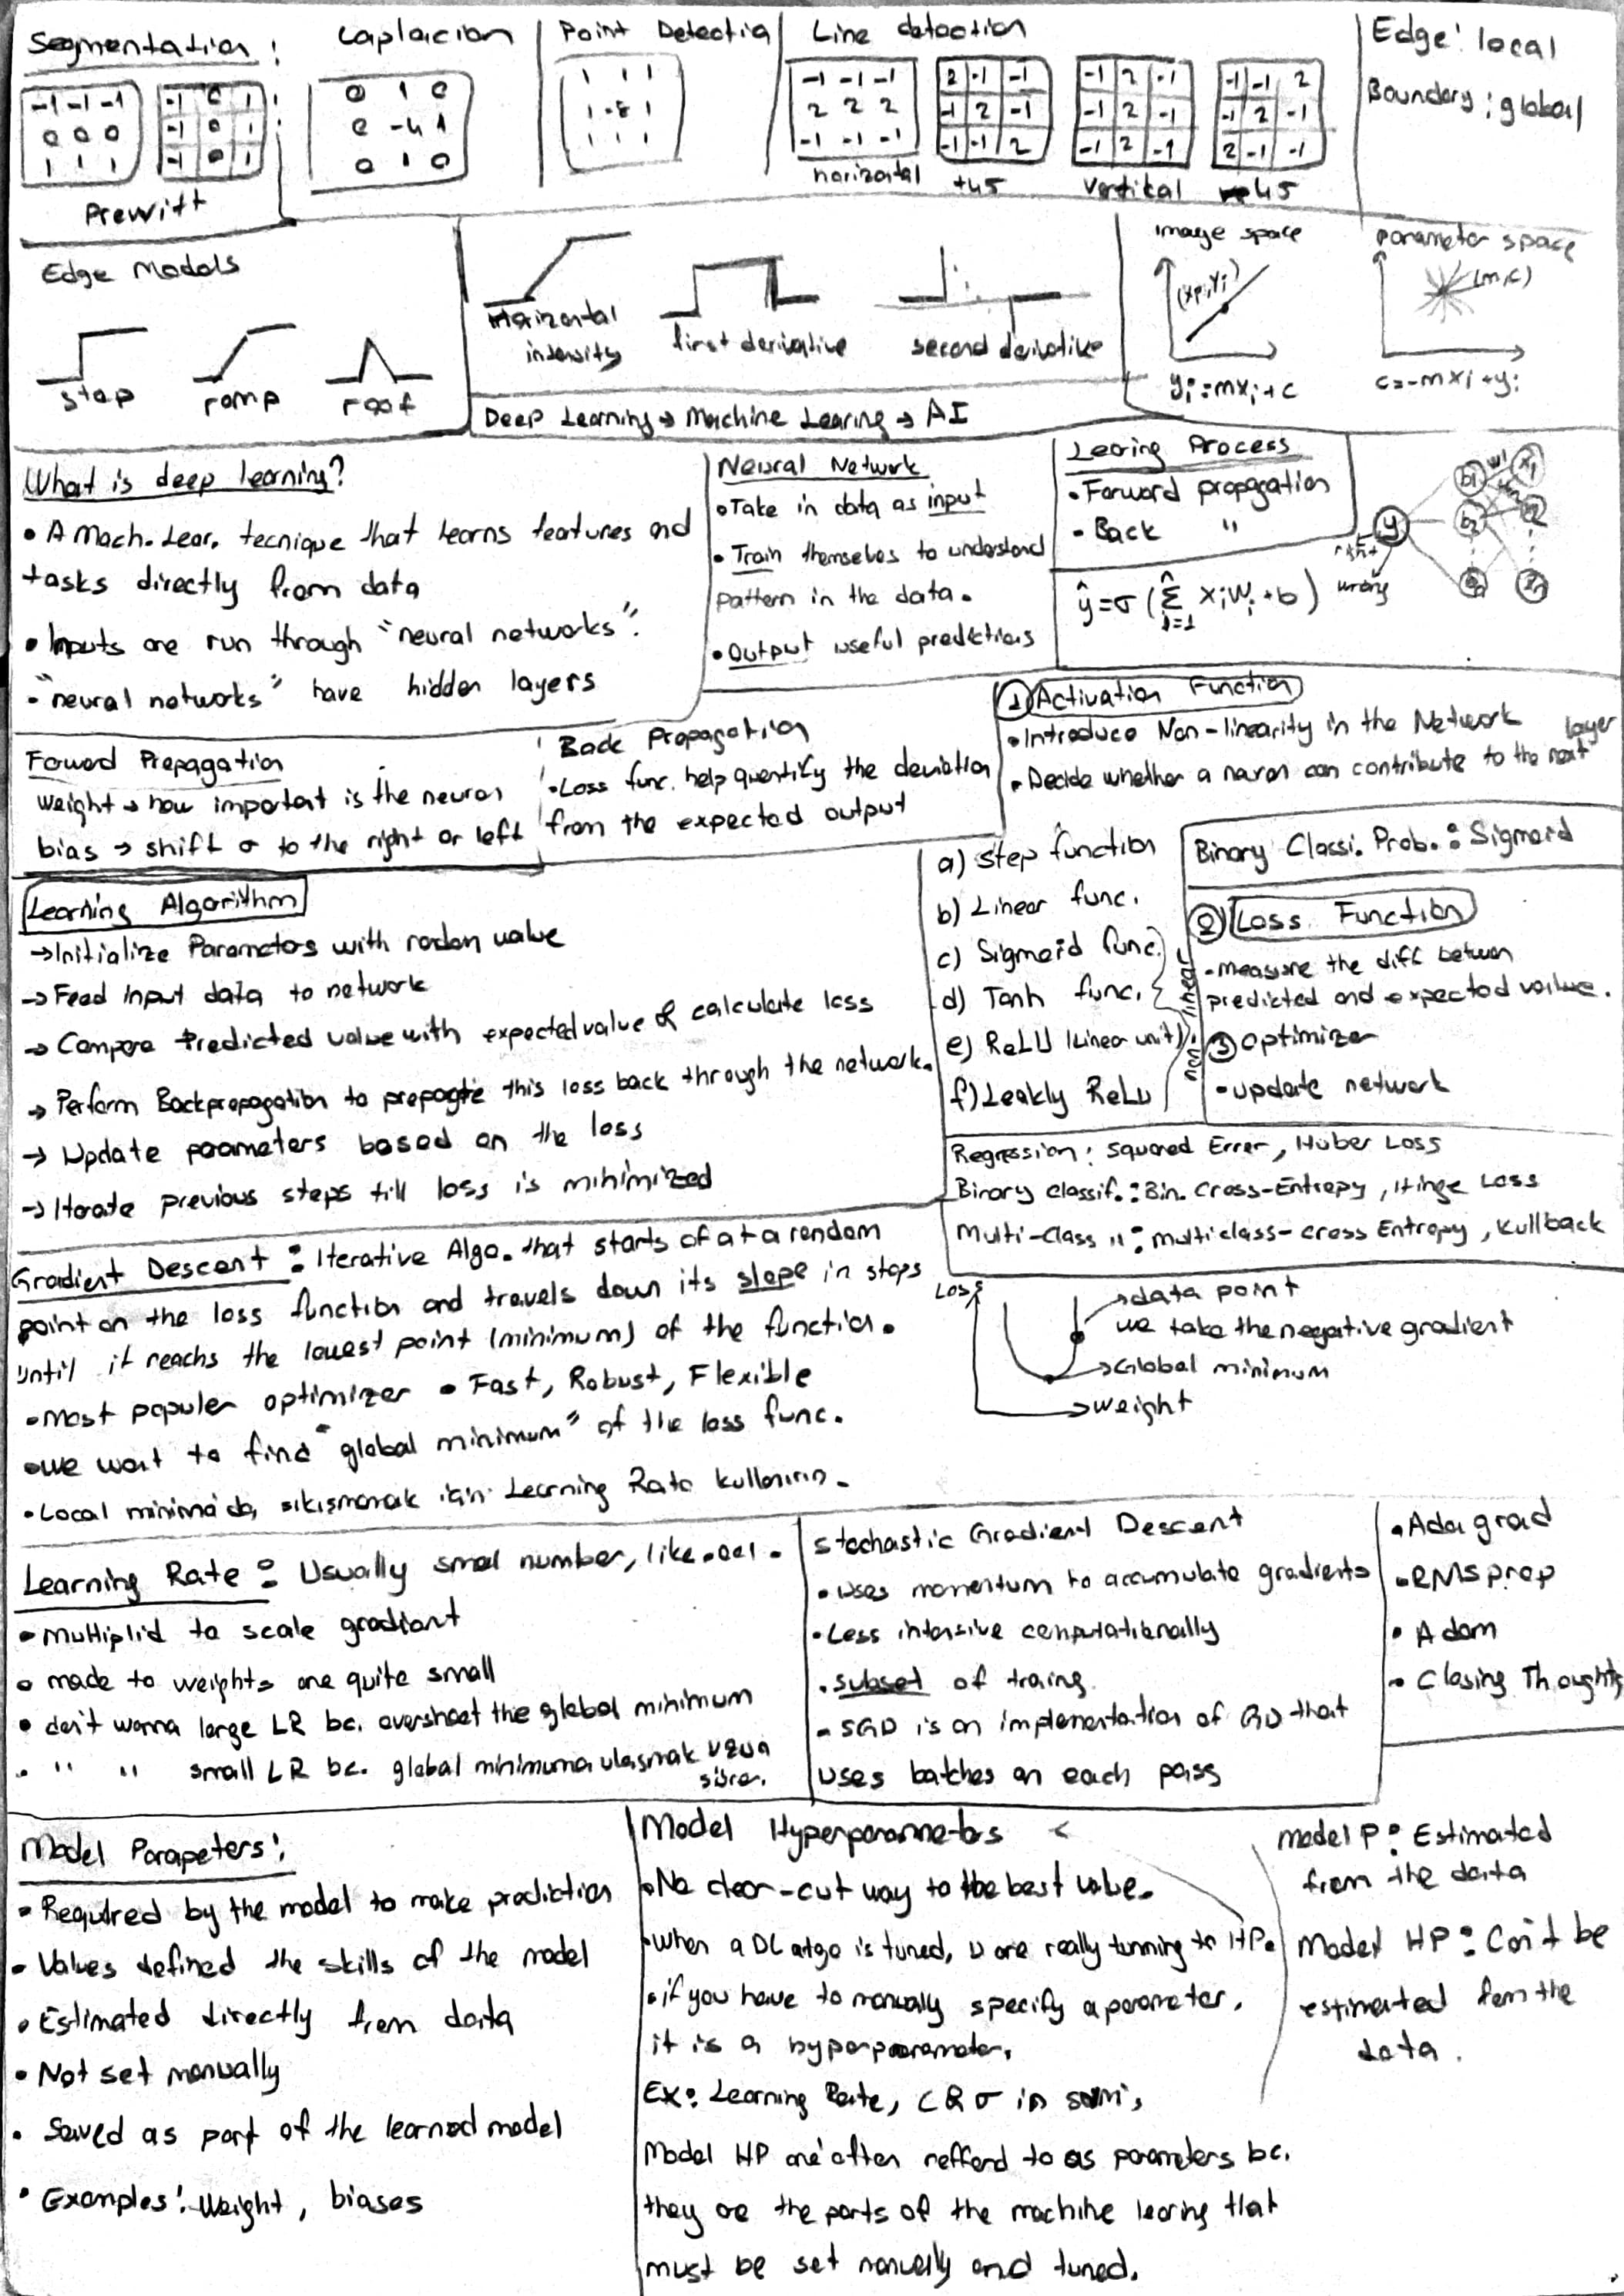 Segmentation:
-1 -1 -1
0 0 0
1 1 1
-1 0 1
-1 0 1
-1 0 1
Prewitt
Laplacion
0 1 0
0 -4 1
0 1 0
Point Detectio
1 1 1
1 -8 1
1 1 1
Line detection
-1 -1 -1
2 2 2
-1 -1 -1
horizontal
2 -1 -1
-1 2 -1
-1 -1 2
+45
-1 2 -1
-1 2 -1
-1 2 -1
Vertikal
-1 -1 2
-1 2 -1
2 -1 -1
-45
Edge: local
Boundary: global
Edge Models
step
ramp
roof
Horizontal
intensity
first derivative
second derivative
image space
(xi,yi)
yi=mxi+c
parameter space
(m,c)
c=-mxi+yi
Deep Learning → Machine Learing → AI
What is deep learning?
• A Mach. Lear. tecnique that learns features and
tasks directly from data
• Inputs are run through "neural networks".
- "neural networks" have hidden layers
Neural Network
• Take in data as input
• Train themselves to understand
pattern in the data.
• Output useful predictions
Learing Process
• Forward propagation
• Back "
ŷ=σ(Σ xiwi+b)
i=1
y
right
wrong
b1
b2
w1
x1
Foward Propagation
weight → how important is the neuron
bias → shift σ to the right or left
Back Propagation
• Loss func. help quantify the deviation
from the expected output
① Activation Function
• Introduce Non-linearity in the Network
• Decide whether a naron can contribute to the next layer
a) step function
b) Linear func.
c) Sigmoid func.
d) Tanh func.
e) ReLU (Linear unit)
f) Leakly ReLu
non linear
Binary Classi. Prob.: Sigmoid
② Loss Function
- measure the diff betwen
predicted and expected value.
③ optimizer
• update network
Learning Algorithm
→ Initialize Parametors with radon value
→ Feed Input data to network
→ Compare Predicted value with expected value & calculate loss
→ Perform Backpropagation to propagte this loss back through the network.
→ Update parameters based on the loss
→ Iterate previous steps till loss is minimized
Regression: Squared Error, Huber Loss
Binary classif.: Bin. Cross-Entropy, Hinge Loss
Multi-Class ": multiclass-cross Entropy, Kullback
Gradient Descent: Iterative Algo. that starts of at a random
point on the loss function and travels down its slope in steps
until it reachs the lowest point (minimum) of the function.
• Most populer optimizer • Fast, Robust, Flexible
• we want to find "global minimum" of the loss func.
• Local minima'da sıkışmamak için Learning Rate kullanırız.
Loss
→ data point
we take the negative gradient
→ Global minimum
→ weight
Learning Rate: Usually small number, like .001.
• Multiplid to scale gradiant
• made to weights one quite small
• don't wanna large LR bc. overshoot the global minimum
• " " small LR bc. global minimuma ulasmak uzun
sürer.
Stochastic Gradient Descent
• Uses momentum to accumulate gradients
• Less intensive computationally
• subset of traing.
- SGD is an implementation of GD that
uses batches on each pass
• Adagrad
• RMSprop
• Adam
• Closing Thoughts
Model Parapeters:
• Required by the model to make prediction
• Values defined the skills of the model
• Estimated directly from data
• Not set manually
• Saved as part of the learned model
• Examples: weight, biases
Model Hyperparameters
• No clear-cut way to the best value.
• When a DL algo is tuned, u are really tunning to HP.
• if you have to manually specify a parameter,
it is a hyperparameter.
Ex: Learning Rate, C & σ in svm,
Model HP are often reffend to as parameters bc.
they are the parts of the machine learing that
must be set manually and tuned.
Model P: Estimated
from the data
Model HP: Can't be
estimated fom the
data.